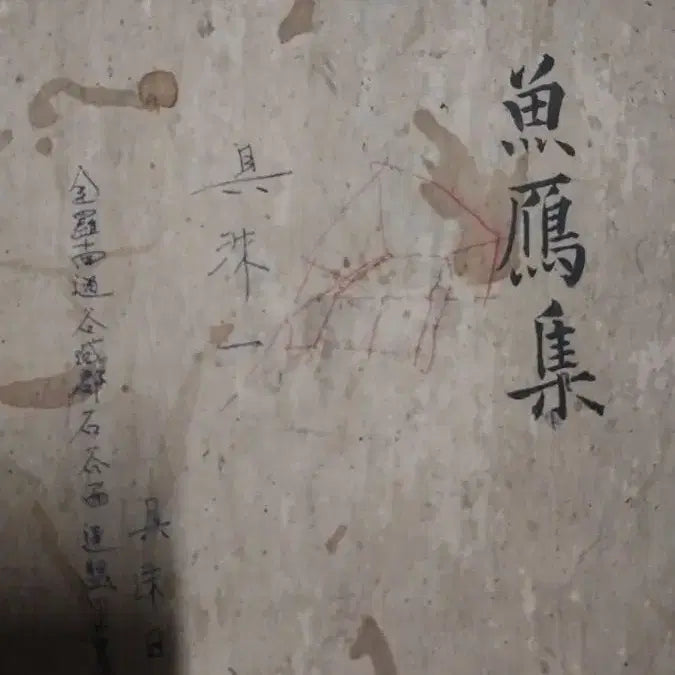 魚鴈集
具洙一
全羅南道谷城郡石谷面
具洙